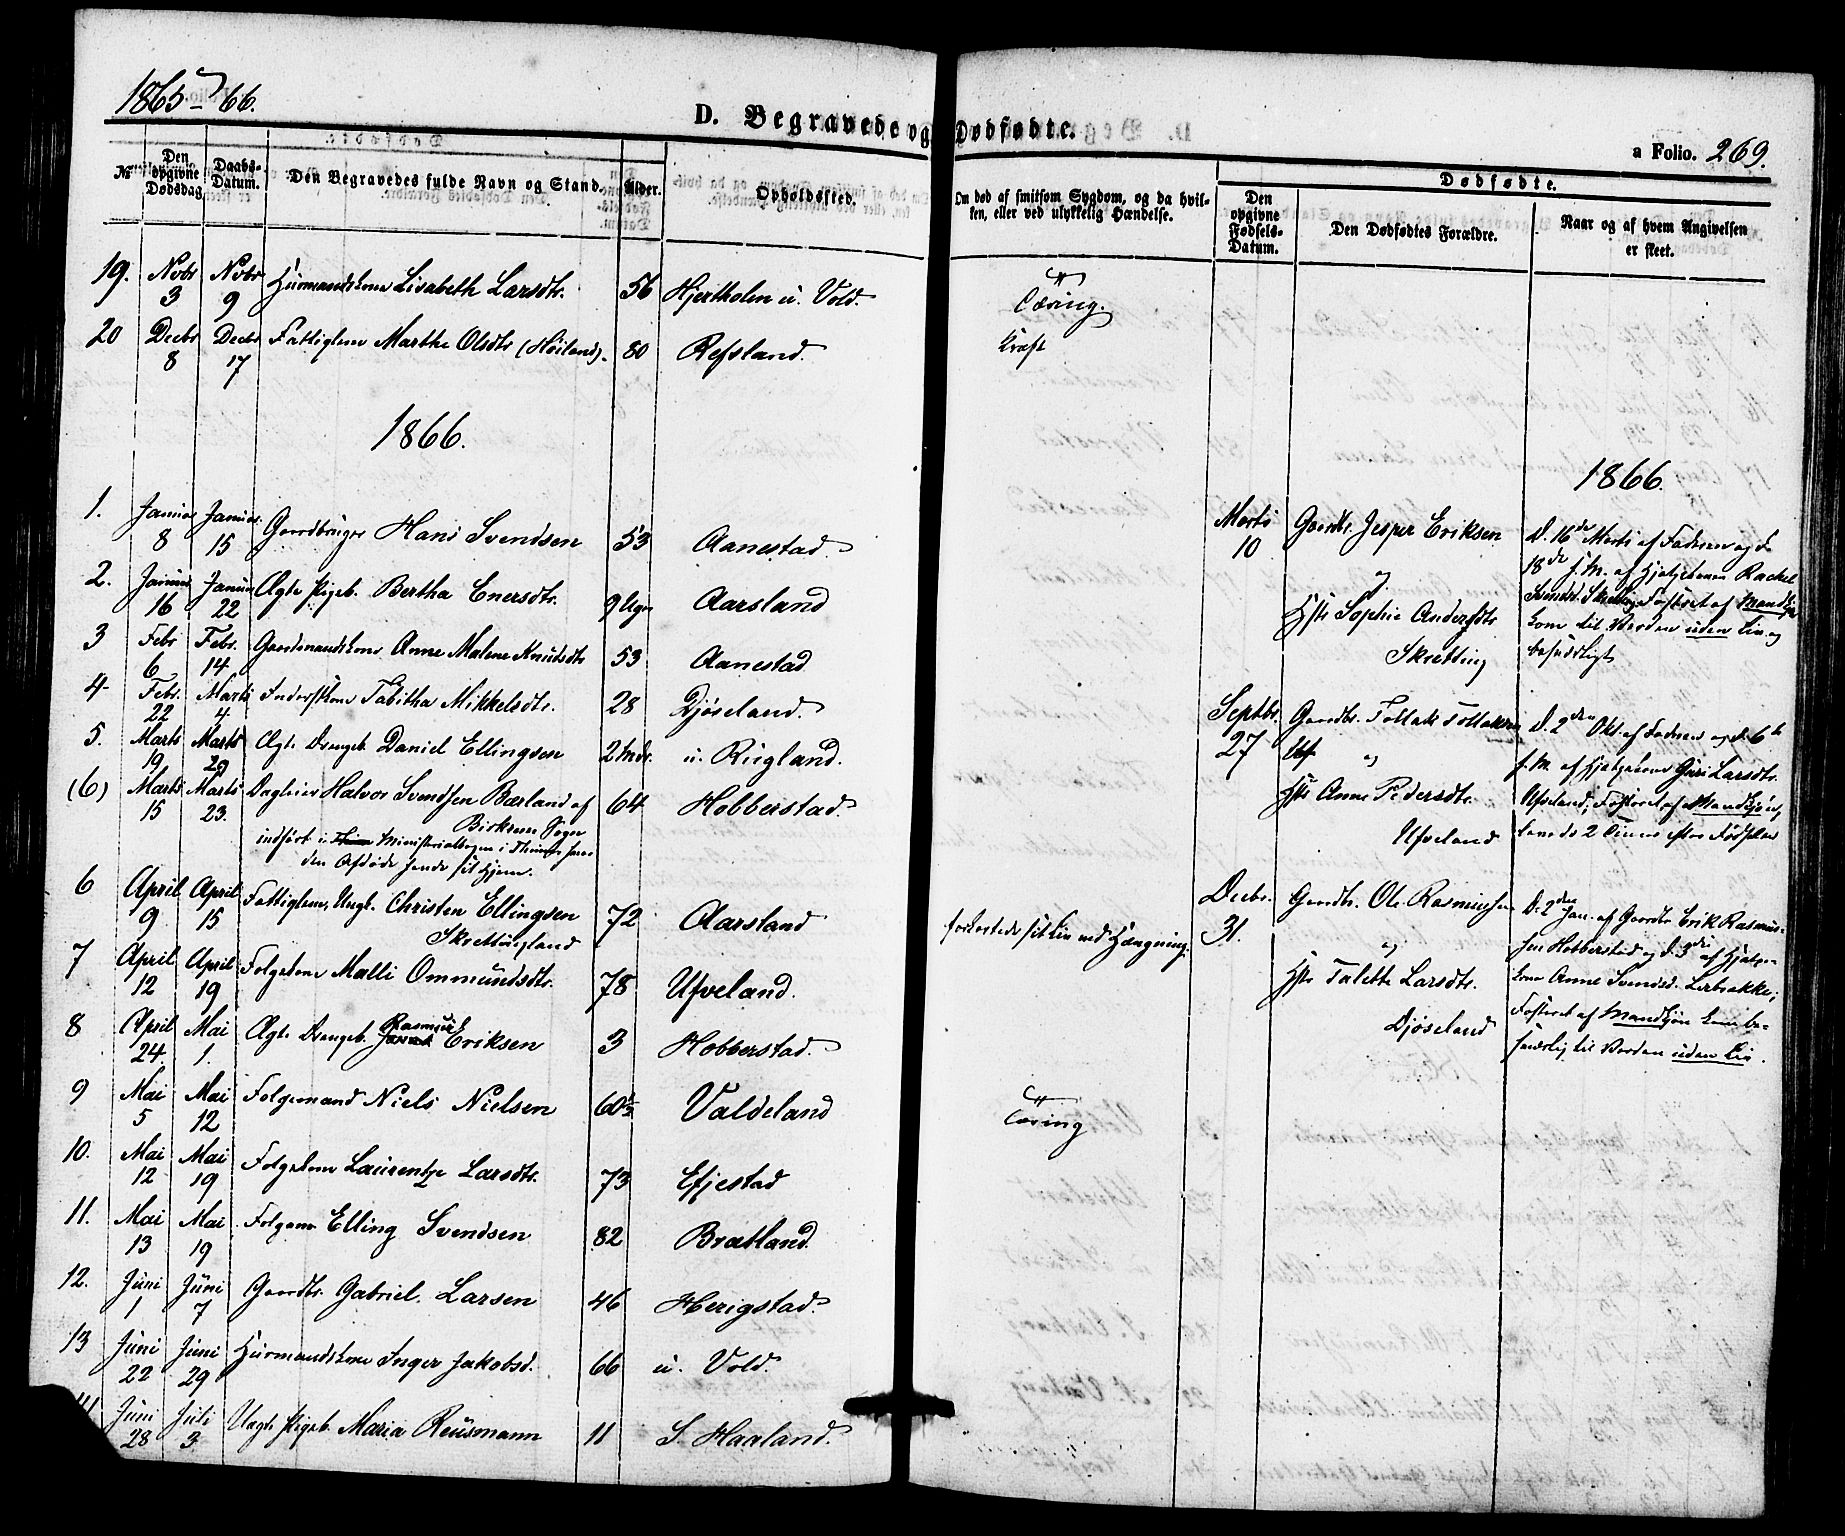 1865-66.
D. Begravede og Dødfødte.
a Folio. 269.
№
Den opgivne Dødsdag
Daabs-Datum.
Den Begravedes fulde Navn og Stand.
Alder.
Opholdssted.
Om død af smitsom Sygdom, og da hvilken, eller ved ulykkelig Hændelse.
Dødfødte.
Den opgivne Fødsels-Datum.
Den Dødfødtes Forældre.
Naar og af hvem Angivelsen er skeet.
19. Novbr 3 Novbr 9 Huusmandskone Lisabeth Larsdtr. 56 Hjertholen u. Vold. Tæring.
20 Decbr 8 Decbr 17 Fattiglem Marthe Olsdtr (Höiland). 80 Refsland. Kræft
1866.
1. Januar 8 Januar 15 Gaardbruger Hans Svendsen 53 Aanestad.
2. Januar 16 Januar 22 Ægte Pigeb. Bertha Enersdtr. 9 Uger Aarsland
3 Febr 6 Febr. 14 Gaardmandskone Anne Malene Knudsdtr 53 Aanestad
4 Febr. 22 Marts 4 Inderstkone Tabitha Mikkelsdtr. 28 Djöseland.
5. Marts 19 Marts 29 Ægte Drengeb. Daniel Ellingsen 2 Mdr. u. Rugland.
(6) Marts 15 Marts 23. Dagleier Halvor Svendsen Bærland af 64 Hobberstad.
Birkrem Sogn
indført i Ministerialbogen i
den Afdøde havde sit Hjem.
6 April 9 April 15 Fattiglem, Ungk. Christen Ellingsen 72 Aarsland forkortede sit Liv ved Hængning.
Skrettingland
7 April 12 April 19 Folgekone Malli Ommundsdtr. 78 Ufveland.
8 April 24 Mai 1. Ægte Drengeb. Rasmus Eriksen 3 Hobberstad.
9 Mai 5 Mai 12 Folgemand Niels Nielsen 60½ Valdeland Tæring
10. Mai 12 Mai 19 Folgekone Laurentze Larsdtr. 73 Efjestad
11. Mai 13 Mai 19 Folgem. Elling Svendsen 82 Bratland.
12. Juni 1 Juni 7 Gaardbr. Gabriel Larsen 46 Herigstad.
13 Juni 22 Juni 29 Huusmandskone Inger Jakobsd. 66 u. Vold.
Juni 28 Juli 3 Uægte Pigeb. Maria Reüsmann 11 S. Haaland.
1866.
Marts 10
Gaardbr. Jesper Eriksen
og
Hstr Sophie Andersdtr
Skretting
D. 16de Marts af Faderen og d.
18de s. M. af Hjelpekonen Rackel
Svendsd. Skretting, Fosteret af Mandkjøn
kom til Verden uden Liv og
Septbr. 27
Gaardbr. Tollak Tollaksen
og
Hstr Anne Pedersdtr.
Ufveland
D. 2den Okt. af Faderen og d. 6te
s. M. af Hjelpekone Guri Larsdtr.
Ufveland; Fosteret af Mandkjøn,
levede 2 Timer efter Fødselen
Decbr. 31.
Gaardbr. Ole Rasmussen
og
Hstr Talette Larsdtr.
Djöseland
D. 2den Jan. af Gaardbr Erik Rasmus-
sen Hobberstad og d. 3die af Hjelpe-
kone Anne Svendsd. Lerbrække;
Fosteret af Mandkjøn kom be-
sværlig til Verden uden Liv.